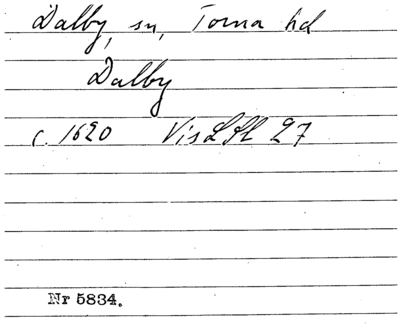 Dalby, sn, Torna hd
Dalby
c. 1620 Vis LSt 27
Nr 5834.